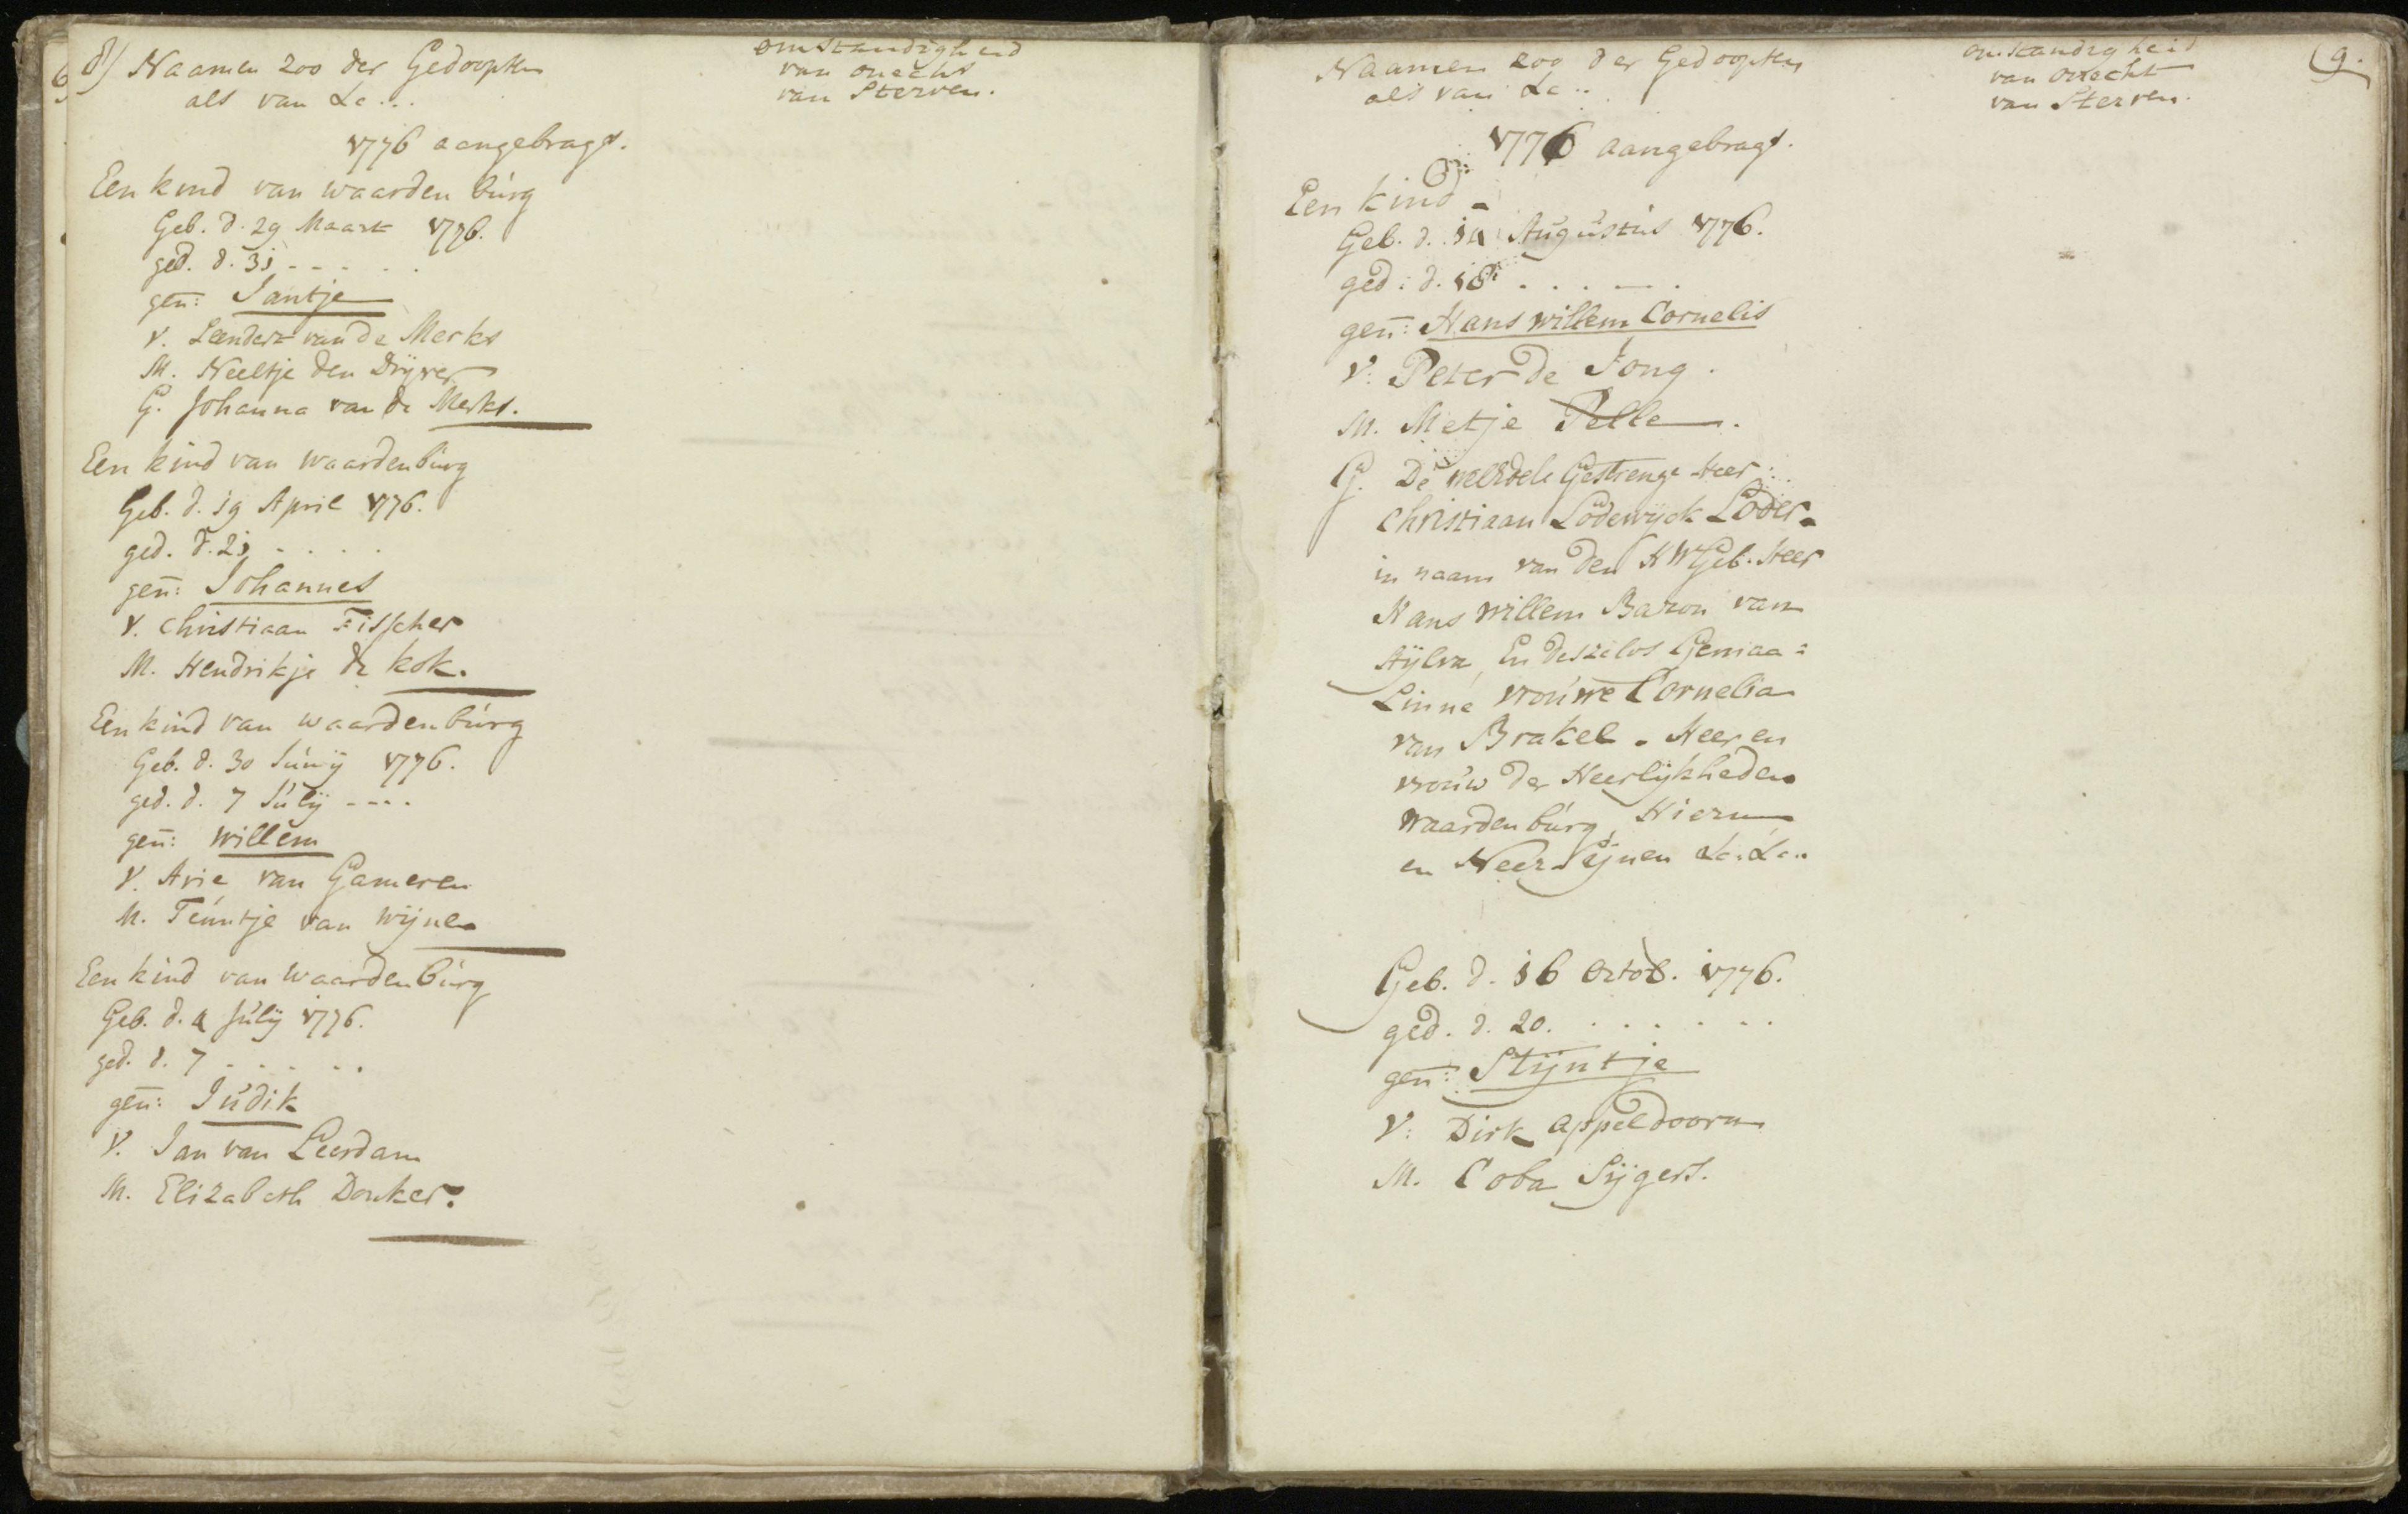 8) Naamen zoo der Gedoopten
als van &c...
omstandigheid
van onecht
van Sterven.
1776 aangebragt.
Een kind van waardenburg
Geb. d. 29 Maart 1776.
ged. d. 31 - - - . .
gen: Jantje
V. Leendert van de Merks
M. Neeltje den Drijver
G. Johanna van de Merks.
Een kind van waardenburg
Geb. d. 19 April 1776.
ged. d. 21 - . . .
gen: Johannes
V. Christiaan Fisscher
M. Hendrikje de kok.
Een kind van waardenburg
Geb. d. 30 Junij 1776.
ged. d. 7 Julij - - - .
gen: willem
V. Arie van Gameren
M. Teuntje van wijnen
Een kind van waardenburg
Geb. d. 4 Julij 1776.
ged. d. 7 . . . . . .
gen: Judik
V. Jan van Leerdam
M. Elizabeth Donker.
Naamen zoo der Gedoopten
als van &c..
omstandigheid
van onecht
van Sterven.
9.
1776 aangebragt.
Een kind
Geb. d. 14 Augustus 1776.
ged: d. 18 . . . . .
gen: Hans willem Cornelis
V: Peter de Jong.
M. Metje Pelle.
G. De welEdele Gestrenge Heer:
Christiaan Lodewyck Loder
in naam van den HWGeb. Heer
Hans willem Baron van
Aylva, En deszelvs Gemaa=
Linne vrouwe Cornelia
van Brakel. Heer en
vrouw der Heerlijkheden
waardenburg, Hiern
en Neer-Ijnen &c. &c..
Geb. d. 16 Octob. 1776.
ged. d. 20. . . . . . .
gen: Stijntje
V: Dirk appeldoorn
M. Coba Sijgers.